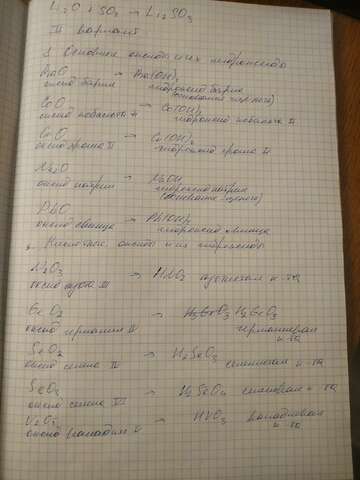 Li₂O + SO₂ → Li₂SO₃
II вариант
1. Основные оксиды и их гидроксиды
BaO → Ba(OH)₂
оксид бария гидроксид бария
(основание щелочь)
CoO → Co(OH)₂
оксид кобальта II гидроксид кобальта II
CrO → Cr(OH)₂
оксид хрома II гидроксид хрома II
Na₂O → NaOH
оксид натрия гидроксид натрия
(основание щелочь)
PbO → Pb(OH)₂
оксид свинца гидроксид свинца
2. Кислотные оксиды и их гидроксиды
N₂O₃ → HNO₂ азотистая к-та
оксид азота III
GeO₂ → H₂GeO₃
оксид германия IV германиевая
к-та
SeO₂ → H₂SeO₃ селенистая к-та
оксид селена IV
SeO₃ → H₂SeO₄ селеновая к-та
оксид селена VI
V₂O₅ → HVO₃ ванадиевая
оксид ванадия V к-та